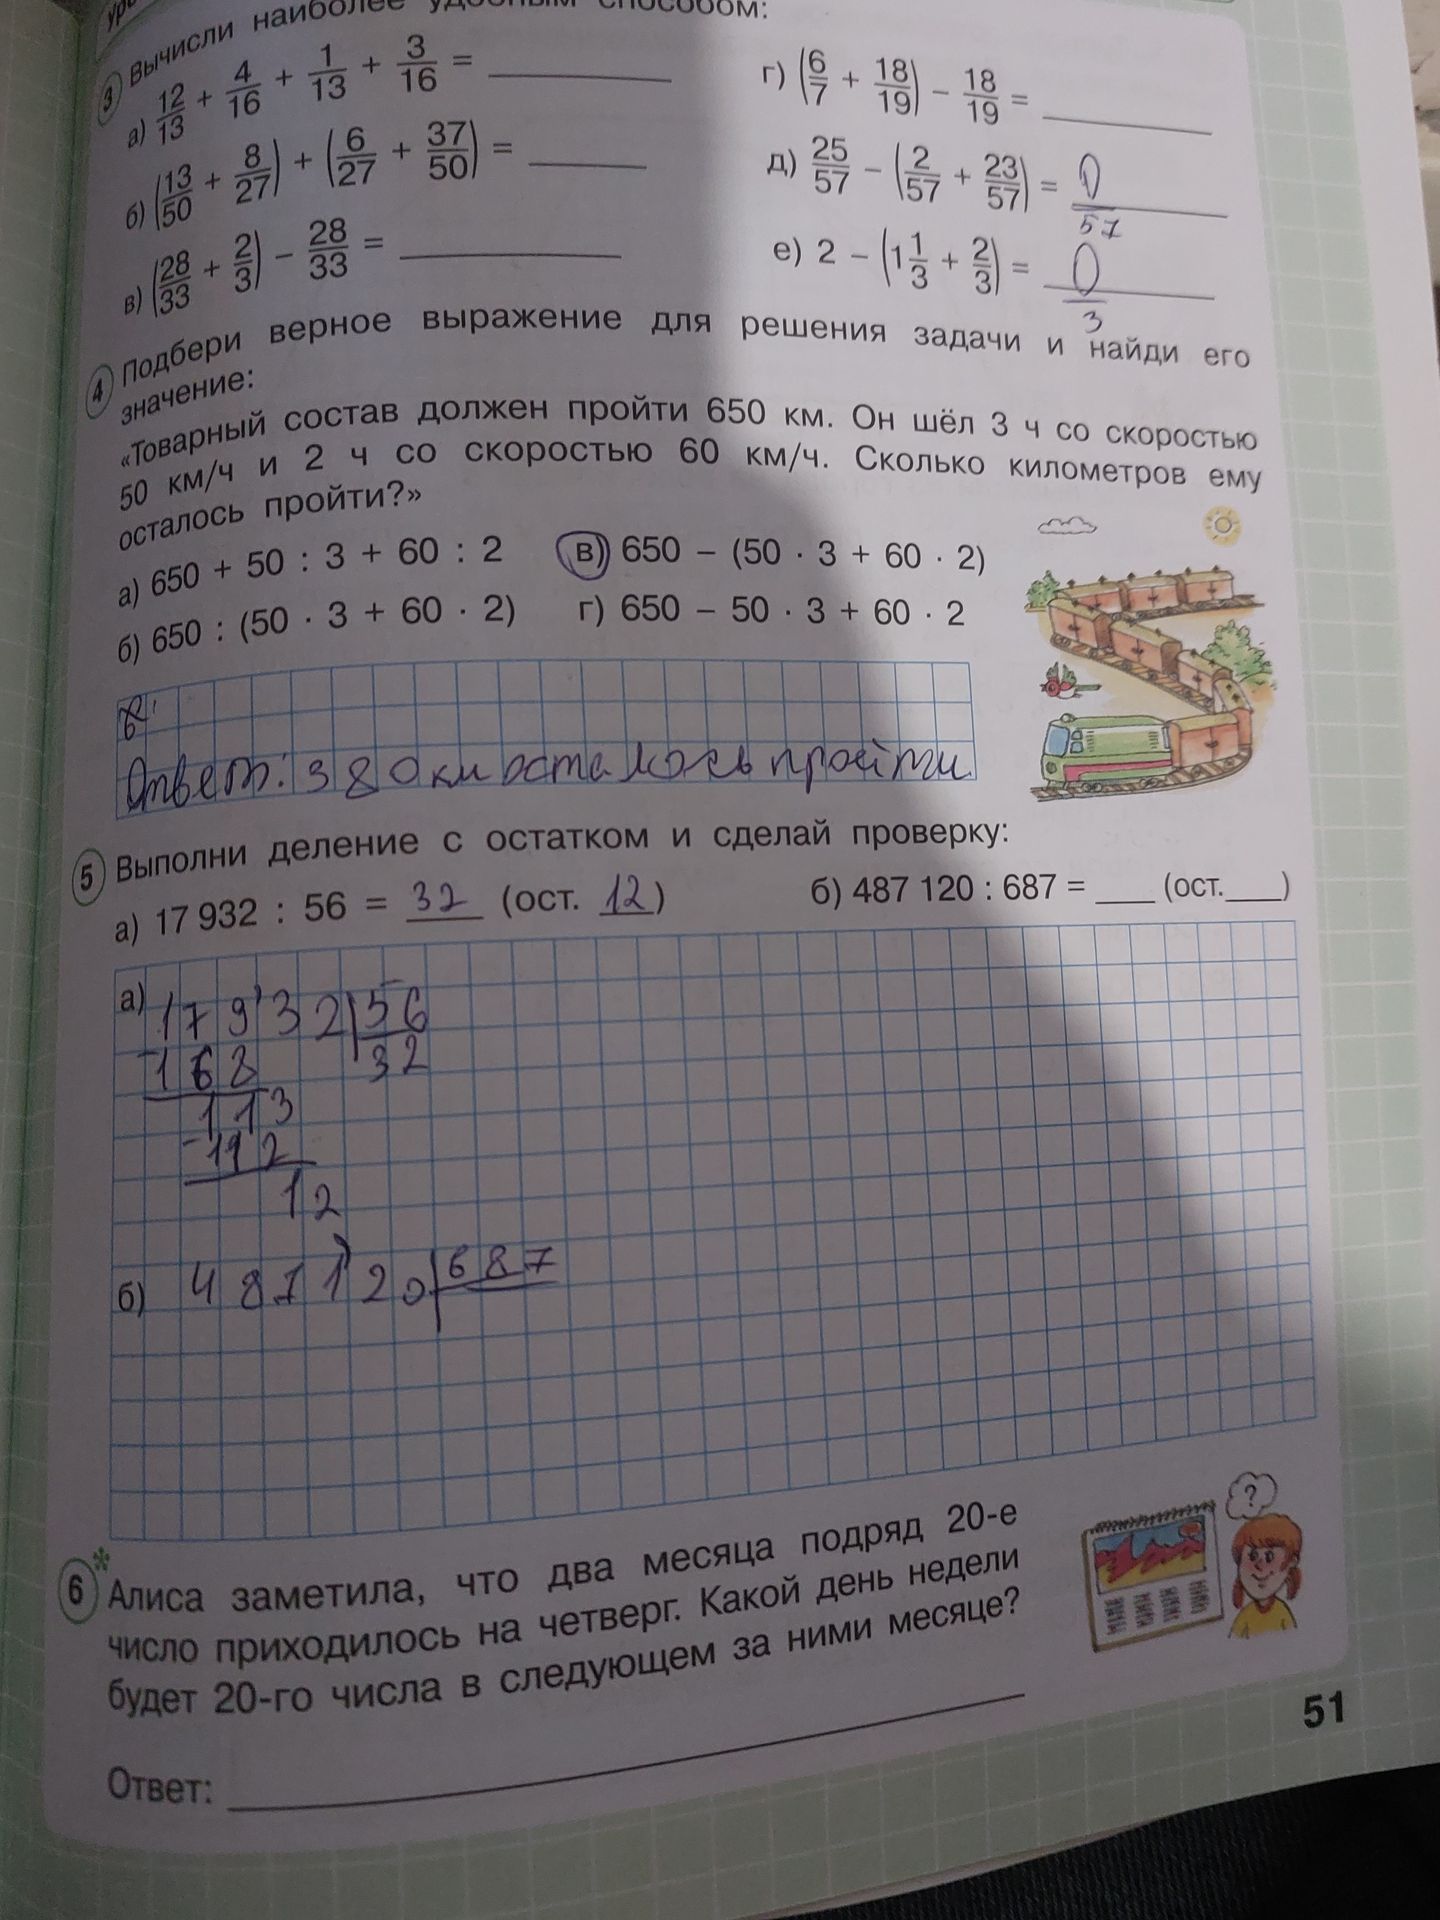 Вычисли наиболее удобным способом:
3 а) 12/13 + 4/16 + 1/13 + 3/16 = ____
г) (6/7 + 18/19) − 18/19 = ____
б) (13/50 + 8/27) + (6/27 + 37/50) = ____
д) 25/57 − (2/57 + 23/57) = 0/57
в) (28/33 + 2/3) − 28/33 = ____
е) 2 − (1 1/3 + 2/3) = 0/3
4 Подбери верное выражение для решения задачи и найди его
значение:
«Товарный состав должен пройти 650 км. Он шёл 3 ч со скоростью
50 км/ч и 2 ч со скоростью 60 км/ч. Сколько километров ему
осталось пройти?»
а) 650 + 50 : 3 + 60 : 2
в) 650 − (50 · 3 + 60 · 2)
б) 650 : (50 · 3 + 60 · 2)
г) 650 − 50 · 3 + 60 · 2
Ответ: 380 км осталось пройти
5 Выполни деление с остатком и сделай проверку:
а) 17 932 : 56 = 32 (ост. 12)
б) 487 120 : 687 = ____ (ост.____)
а) 17932 56
168 32
113
112
12
б) 487120 687
6* Алиса заметила, что два месяца подряд 20-е
число приходилось на четверг. Какой день недели
будет 20-го числа в следующем за ними месяце?
?
Ответ: ____
51